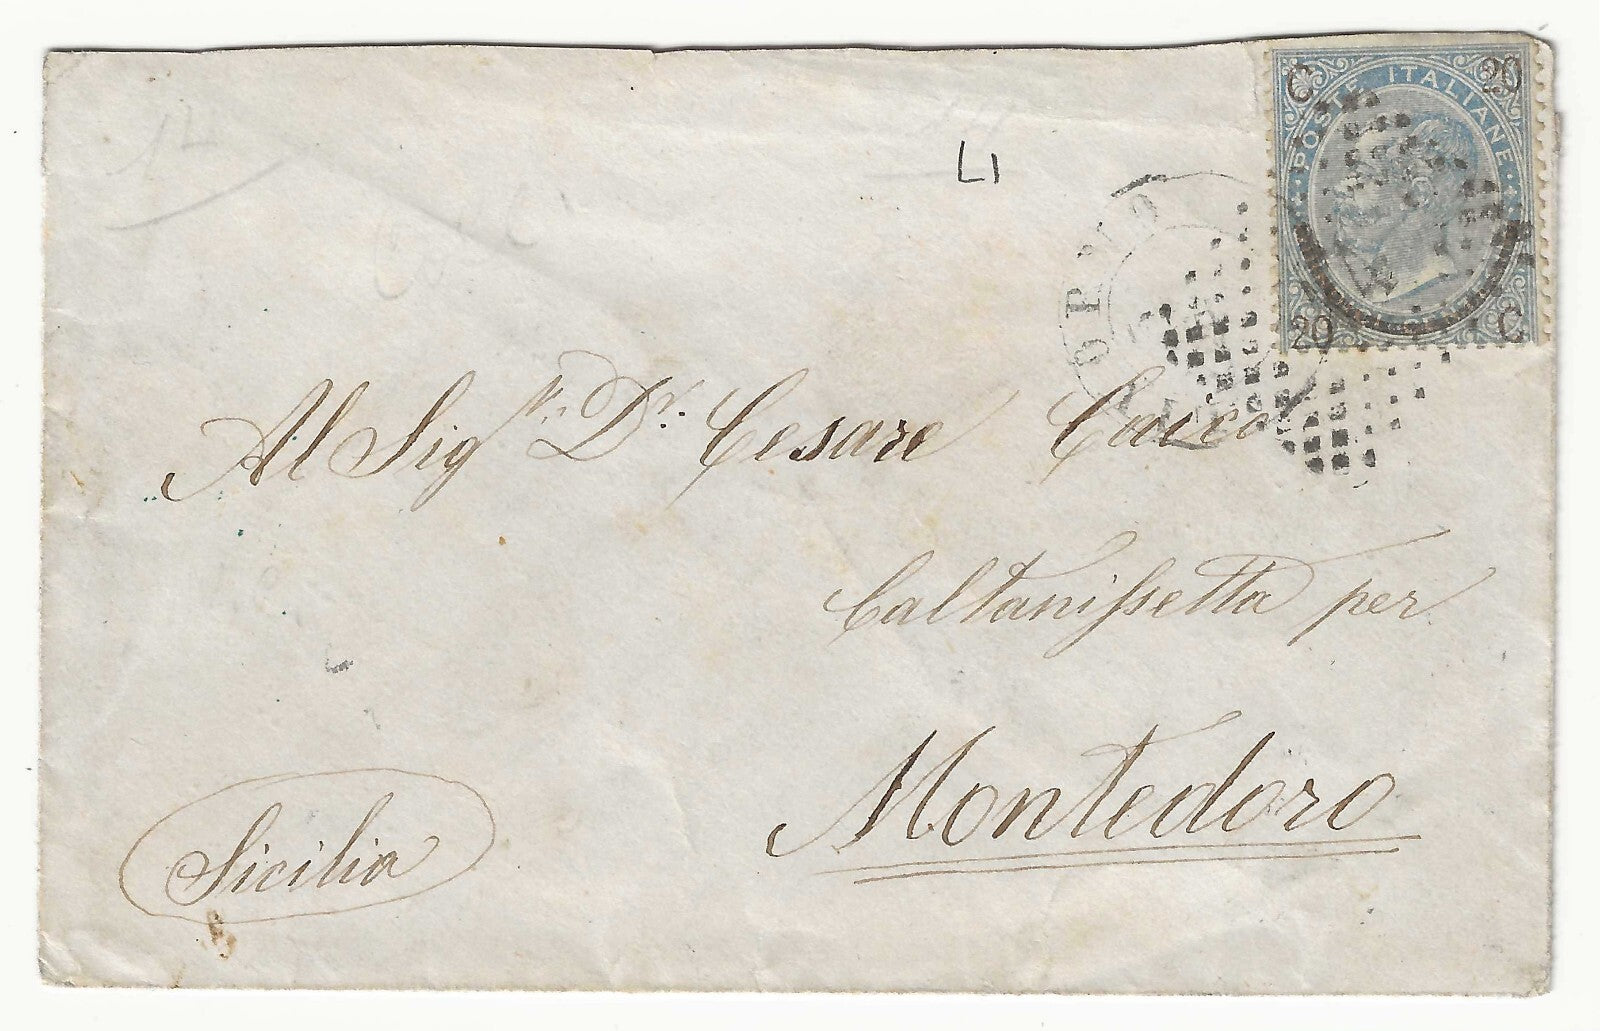 C 20
POSTE ITALIANE
20 C
12
L1
Al Sig.r Dr. Cesare
Caltanissetta per
Montedoro
Sicilia